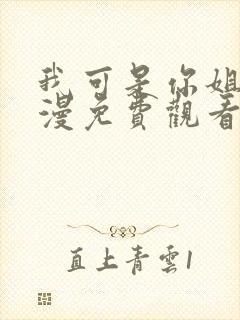 我可是你姐
漫免費觀看
直上青雲1